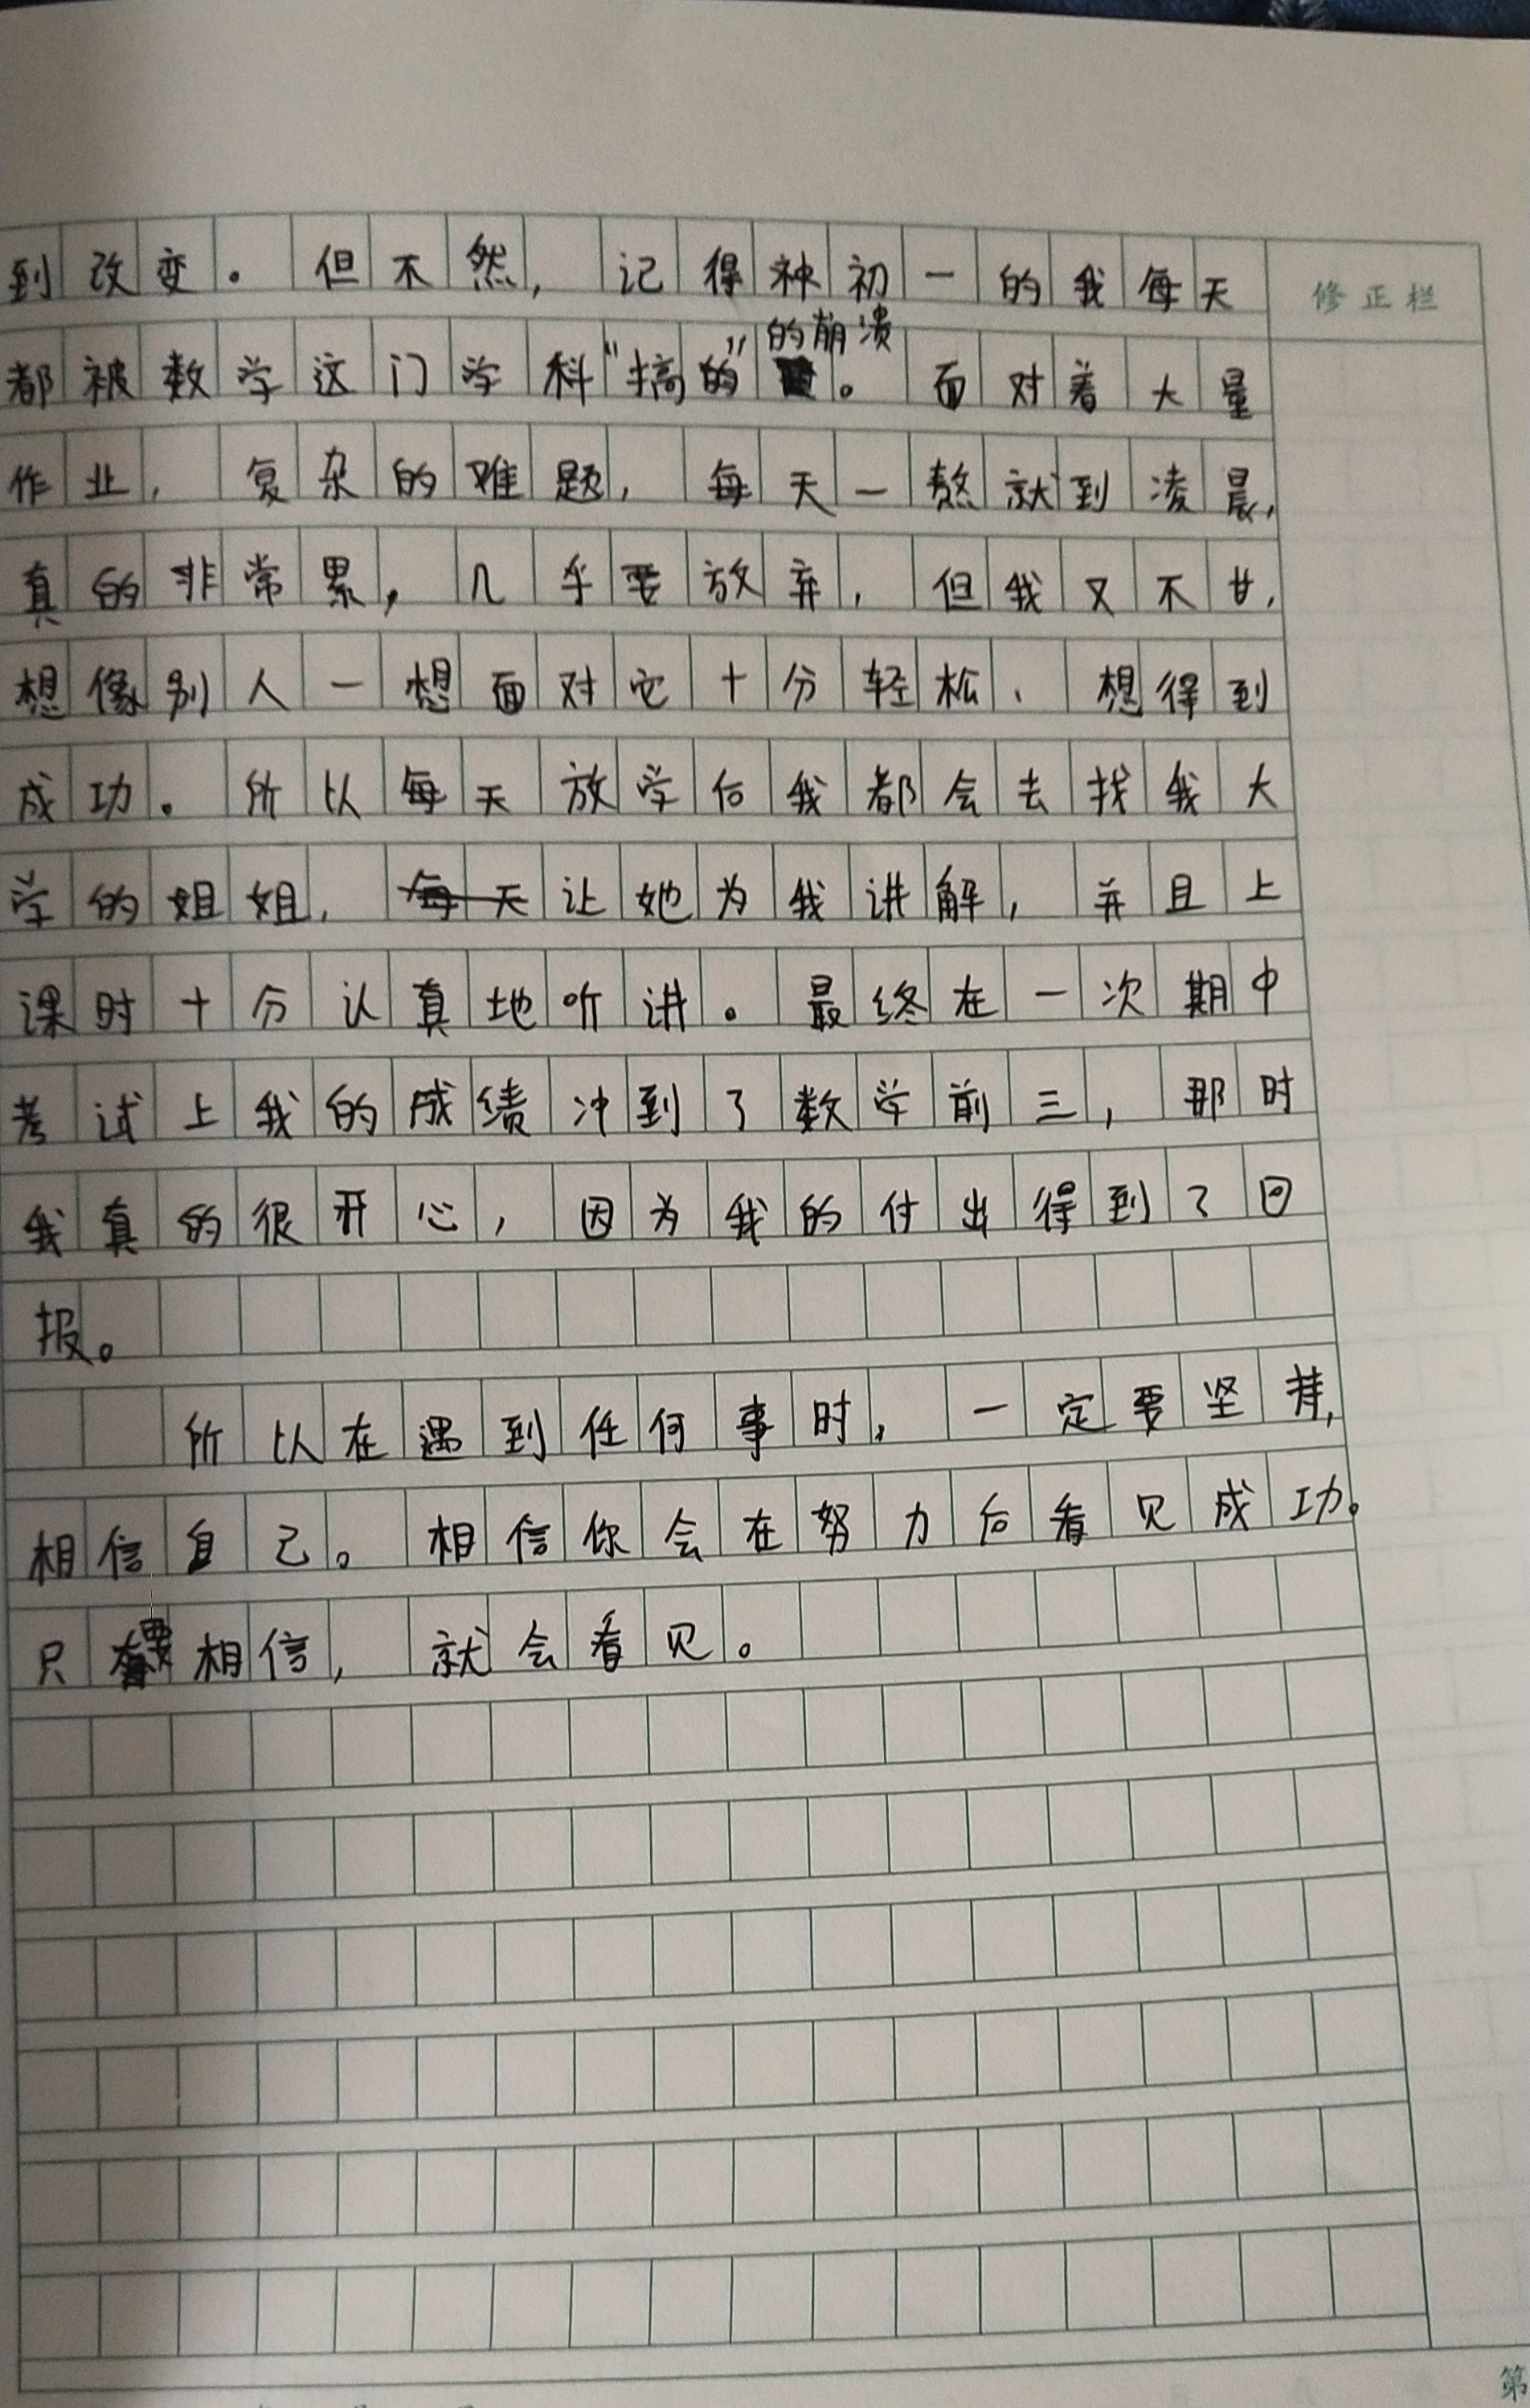 到改变。但不然，记得神初一的我每天
修正栏
都被数学这门学科"搞的"的崩溃。面对着大量
作业，复杂的难题，每天一熬就到凌晨，
真的非常累，几乎要放弃，但我又不甘，
想像别人一想面对它十分轻松、想得到
成功。所以每天放学后我都会去找我大
学的姐姐，每天让她为我讲解，并且上
课时十分认真地听讲。最终在一次期中
考试上我的成绩冲到了数学前三，那时
我真的很开心，因为我的付出得到了回
报。
所以在遇到任何事时，一定要坚持，
相信自己。相信你会在努力后看见成功。
只要相信，就会看见。
第